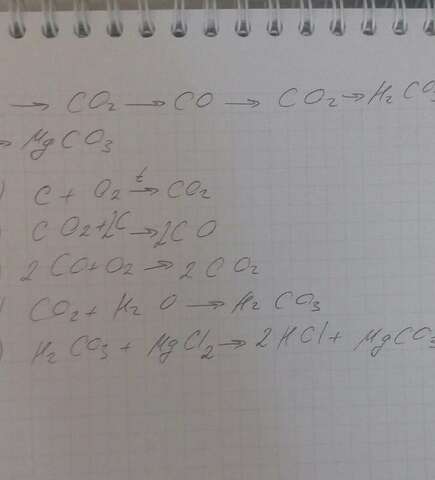 → CO₂ → CO → CO₂ → H₂CO₃
→ MgCO₃
) C + O₂ →ᵗ CO₂
CO₂ + C → 2CO
) 2CO + O₂ → 2CO₂
) CO₂ + H₂O → H₂CO₃
) H₂CO₃ + MgCl₂ → 2HCl + MgCO₃